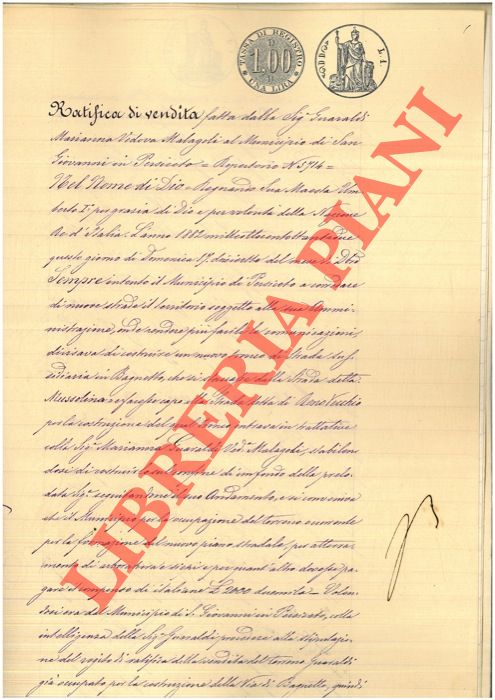 TASSA DI REGISTRO
D 1.00 D
UNA LIRA
Ratifica di vendita fatta dalla Sigª Guaraldi
Marianna Vedova Malagoli al Municipio di San
Giovanni in Persiceto = Repertorio N 5714 =
Nel Nome di Dio = Regnando Sua Maestà Um
berto I° per grazia di Dio e per volontà della Nazione
Re d'Italia. L'anno 1882 milleottocentottantadue
questo giorno di Domenica 17. diciasette del mese di
Sempre intento il Municipio di Persiceto a
di nuove strade il territorio soggetto alla sua Ammi
nistrazione, onde rendere più facili le comunicazioni,
divisava di costruire un nuovo tronco di strada sus
sidiaria in Bagnetto, che si dalla strada detta
Mussolina e facesse capo alla strada detta di Reno Vecchio
per la costruzione del qual tronco entrava in trattative
colla Sigª Marianna Guaraldi Vedª Malagoli, stabilen
dosi di costruirlo sul confine di un fondo della prelo
data Sigª e si conveniva
che il Municipio per la occupazione del terreno occorrente
per la formazione del nuovo piano stradale, per atterra
mento di e per quant'altro dovesse pa
gare il compenso di italiane £ 2000 duemila = Volen
dosi ora dal Municipio di S. Giovanni in Persiceto, colla
intelligenza della Sigª Guaraldi, venire alla stipulazio
ne del rogito di ratifica della vendita del terreno Guaraldi
già occupato per la costruzione della Via di Bagnetto, quindi
LIBRERIA PIANI